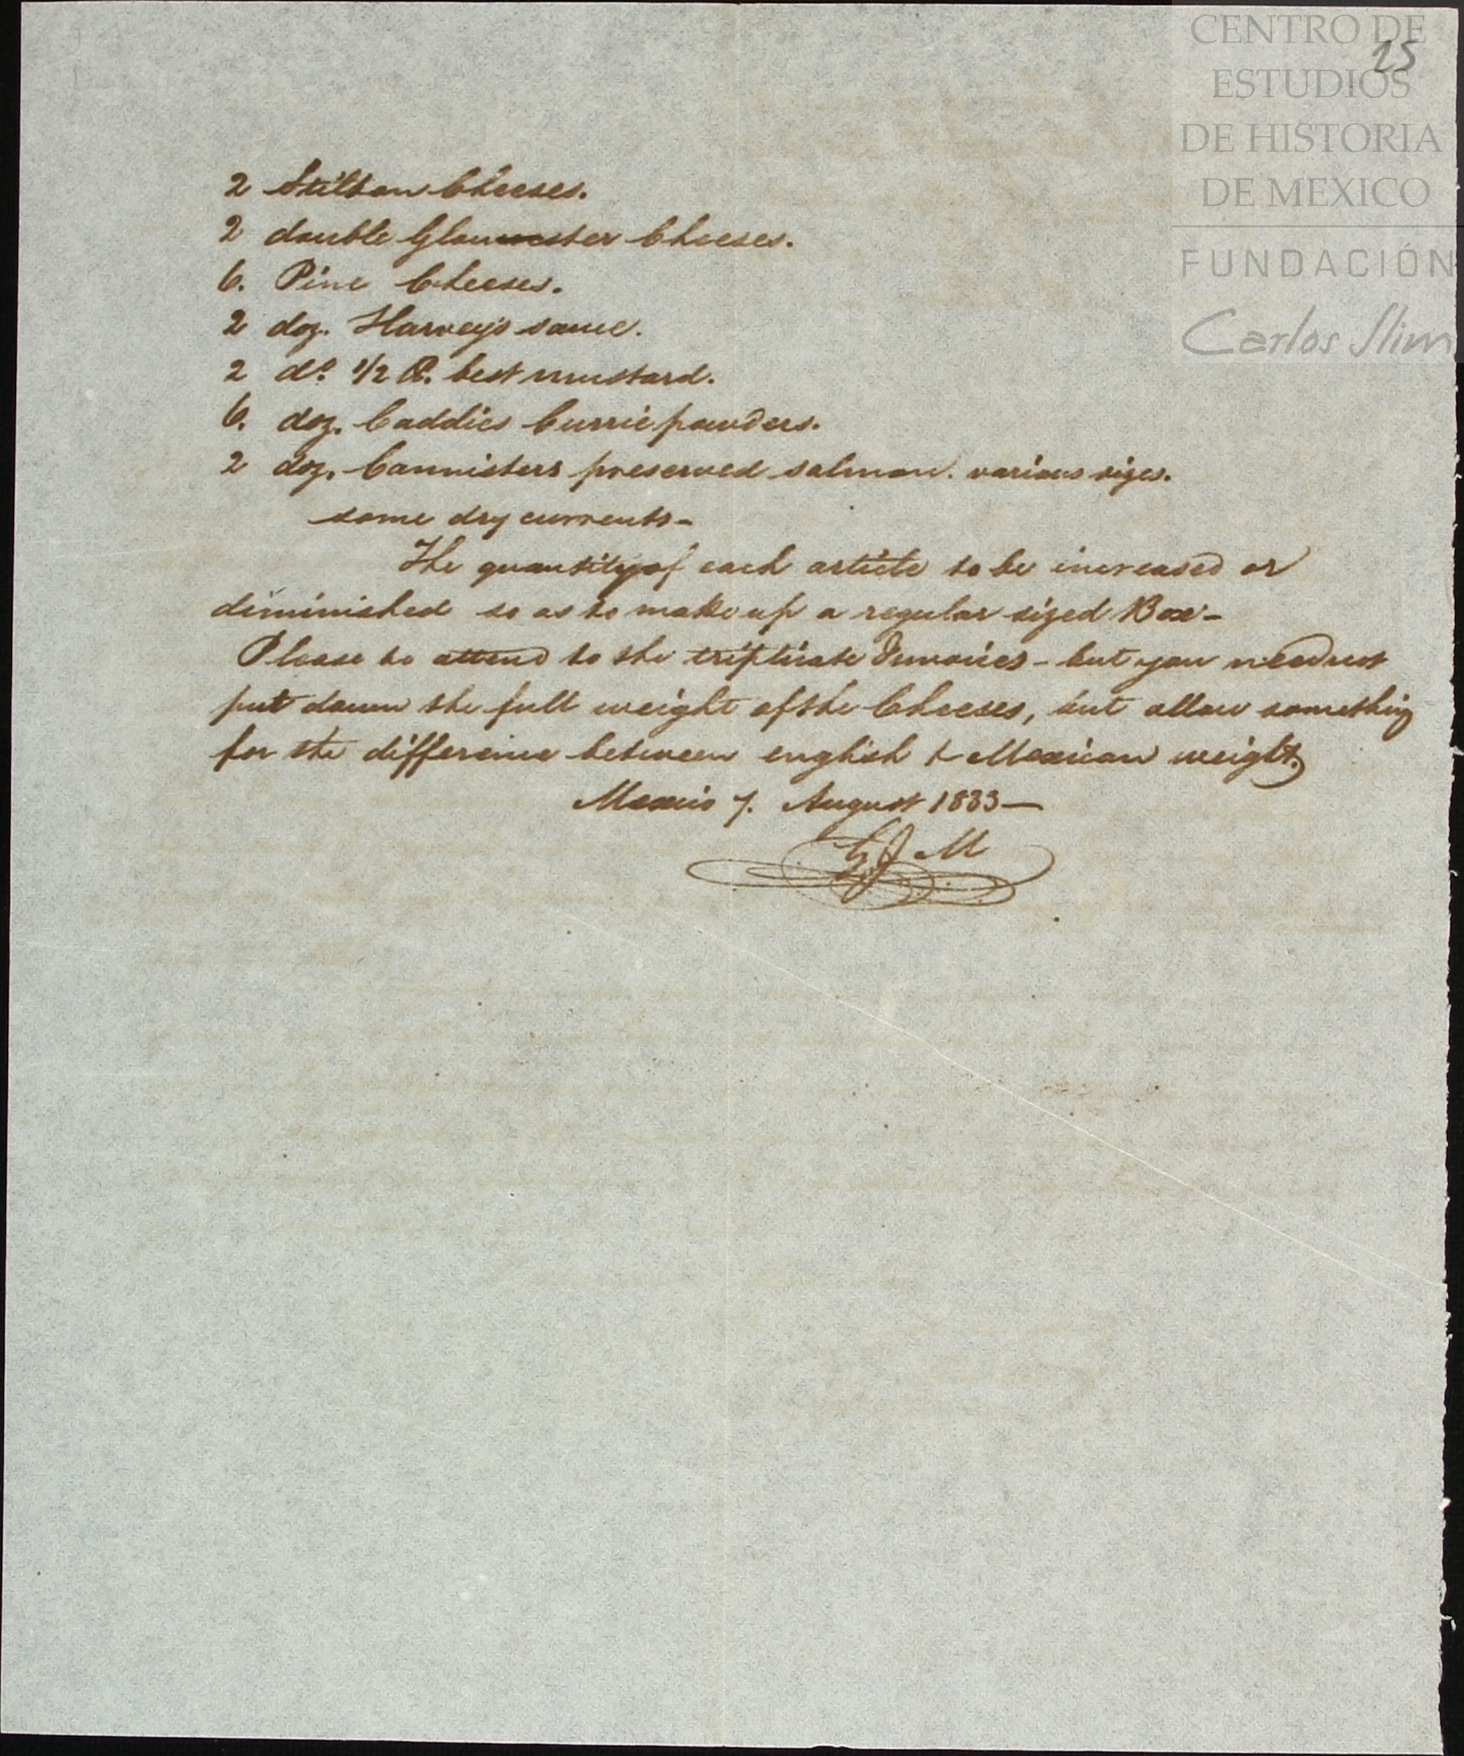 CENTRO DE
25
ESTUDIOS
DE HISTORIA
DE MEXICO
FUNDACIÓN
Carlos Slim
2 Stilton Cheeses.
2 double Gloucester Cheeses.
6. Pine Cheeses.
2 doz. Harveys sauce.
2 do. 1/2 lb. best mustard.
6. doz. Caddies Currie powders.
2 doz. Cannisters preserved salmon. various sizes.
some dry currents-
The quantity of each article to be increased or
diminished so as to make up a regular sized Box-
Please to attend to the triplicate Invoices - but you need not
put down the full weight of the Cheeses, but allow something
for the difference between english & Mexican weight.
Mexico 7. August 1833—
G J M